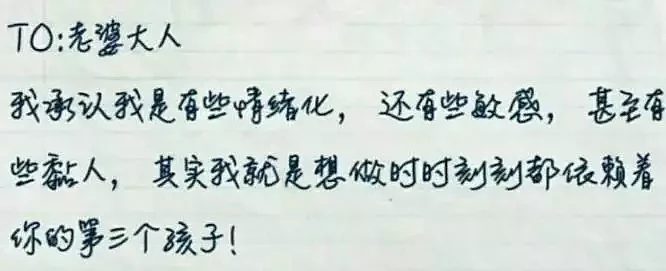 TO:老婆大人
我承认我是有些情绪化，还有些敏感，甚至有
些黏人，其实我就是想做时时刻刻都依赖着
你的第三个孩子！